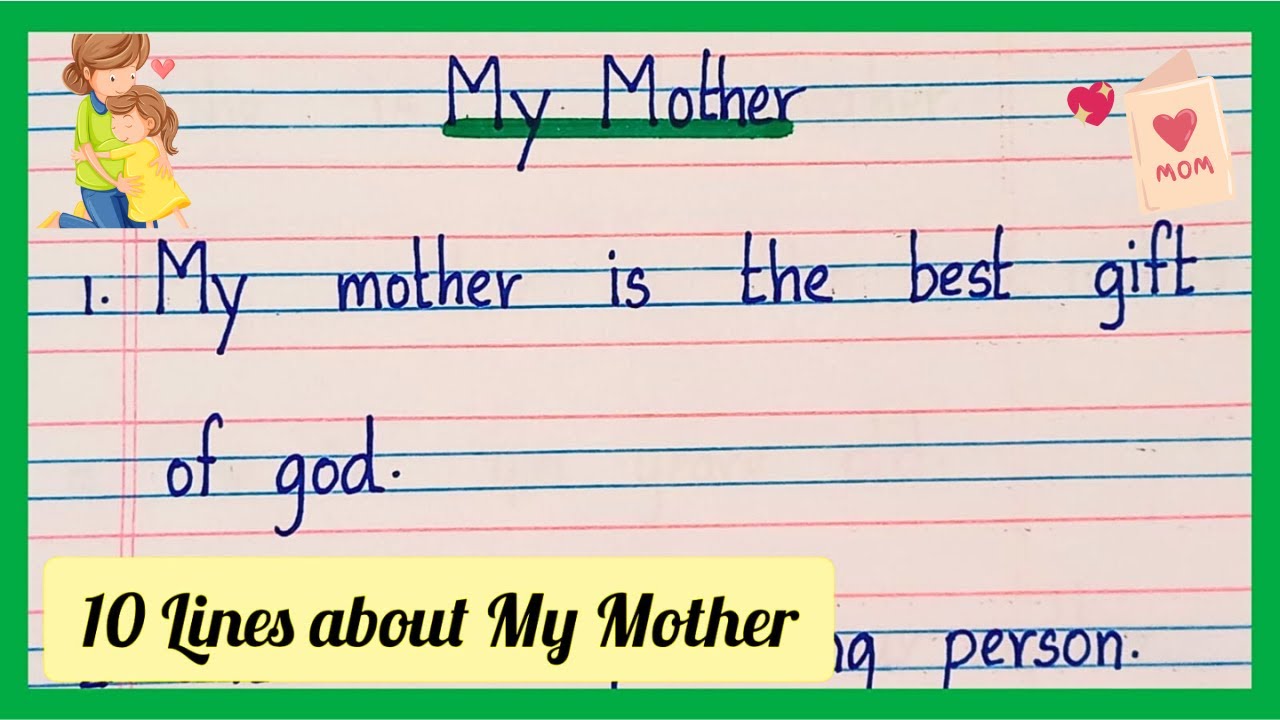 My Mother
MOM
1. My mother is the best gift
of god.
person.
10 Lines about My Mother